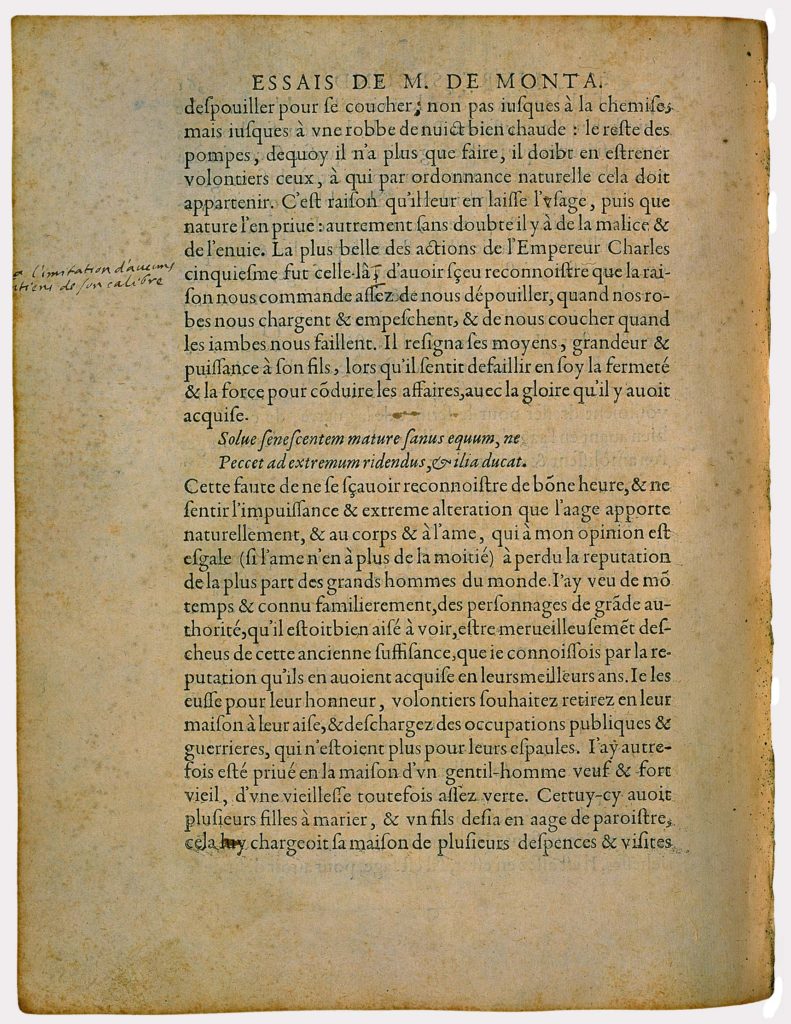 ESSAIS DE M. DE MONTA.
deſpouiller pour ſe coucher; non pas iuſques à la chemiſe,
mais iuſques à vne robbe de nuict bien chaude : le reſte des
pompes, dequoy il n'a plus que faire, il doibt en eſtrener
volontiers ceux, à qui par ordonnance naturelle cela doit
appartenir. C'eſt raiſon qu'il leur en laiſſe l'vſage, puis que
nature l'en priue : autrement ſans doubte il y à de la malice &
de l'enuie. La plus belle des actions de l'Empereur Charles
a l'imitation d'aucuns
cinquieſme fut celle-là, d'auoir ſçeu reconnoiſtre que la rai-
tiens de ſon calibre
ſon nous commande aſſez de nous dépouiller, quand nos ro-
bes nous chargent & empeſchent, & de nous coucher quand
les iambes nous faillent. Il reſigna ſes moyens, grandeur &
puiſſance à ſon fils, lors qu'il ſentit defaillir en ſoy la fermeté
& la force pour cõduire les affaires, auec la gloire qu'il y auoit
acquiſe.
Solue ſeneſcentem mature ſanus equum, ne
Peccet ad extremum ridendus, & ilia ducat.
Cette faute de ne ſe ſçauoir reconnoiſtre de bõne heure, & ne
ſentir l'impuiſſance & extreme alteration que l'aage apporte
naturellement, & au corps & à l'ame, qui à mon opinion eſt
eſgale (ſi l'ame n'en à plus de la moitié) à perdu la reputation
de la plus part des grands hommes du monde. I'ay veu de mõ
temps & connu familierement, des perſonnages de grãde au-
thorité, qu'il eſtoit bien aiſé à voir, eſtre merueilleuſemẽt deſ-
cheus de cette ancienne ſuffiſance, que ie connoiſſois par la re-
putation qu'ils en auoient acquiſe en leurs meilleurs ans. Ie les
euſſe pour leur honneur, volontiers ſouhaitez retirez en leur
maiſon à leur aiſe, & deſchargez des occupations publiques &
guerrieres, qui n'eſtoient plus pour leurs eſpaules. I'ay autre-
fois eſté priué en la maiſon d'vn gentil-homme veuf & fort
vieil, d'vne vieilleſſe toutefois aſſez verte. Cettuy-cy auoit
pluſieurs filles à marier, & vn fils deſia en aage de paroiſtre,
cela luy chargeoit ſa maiſon de pluſieurs deſpences & viſites